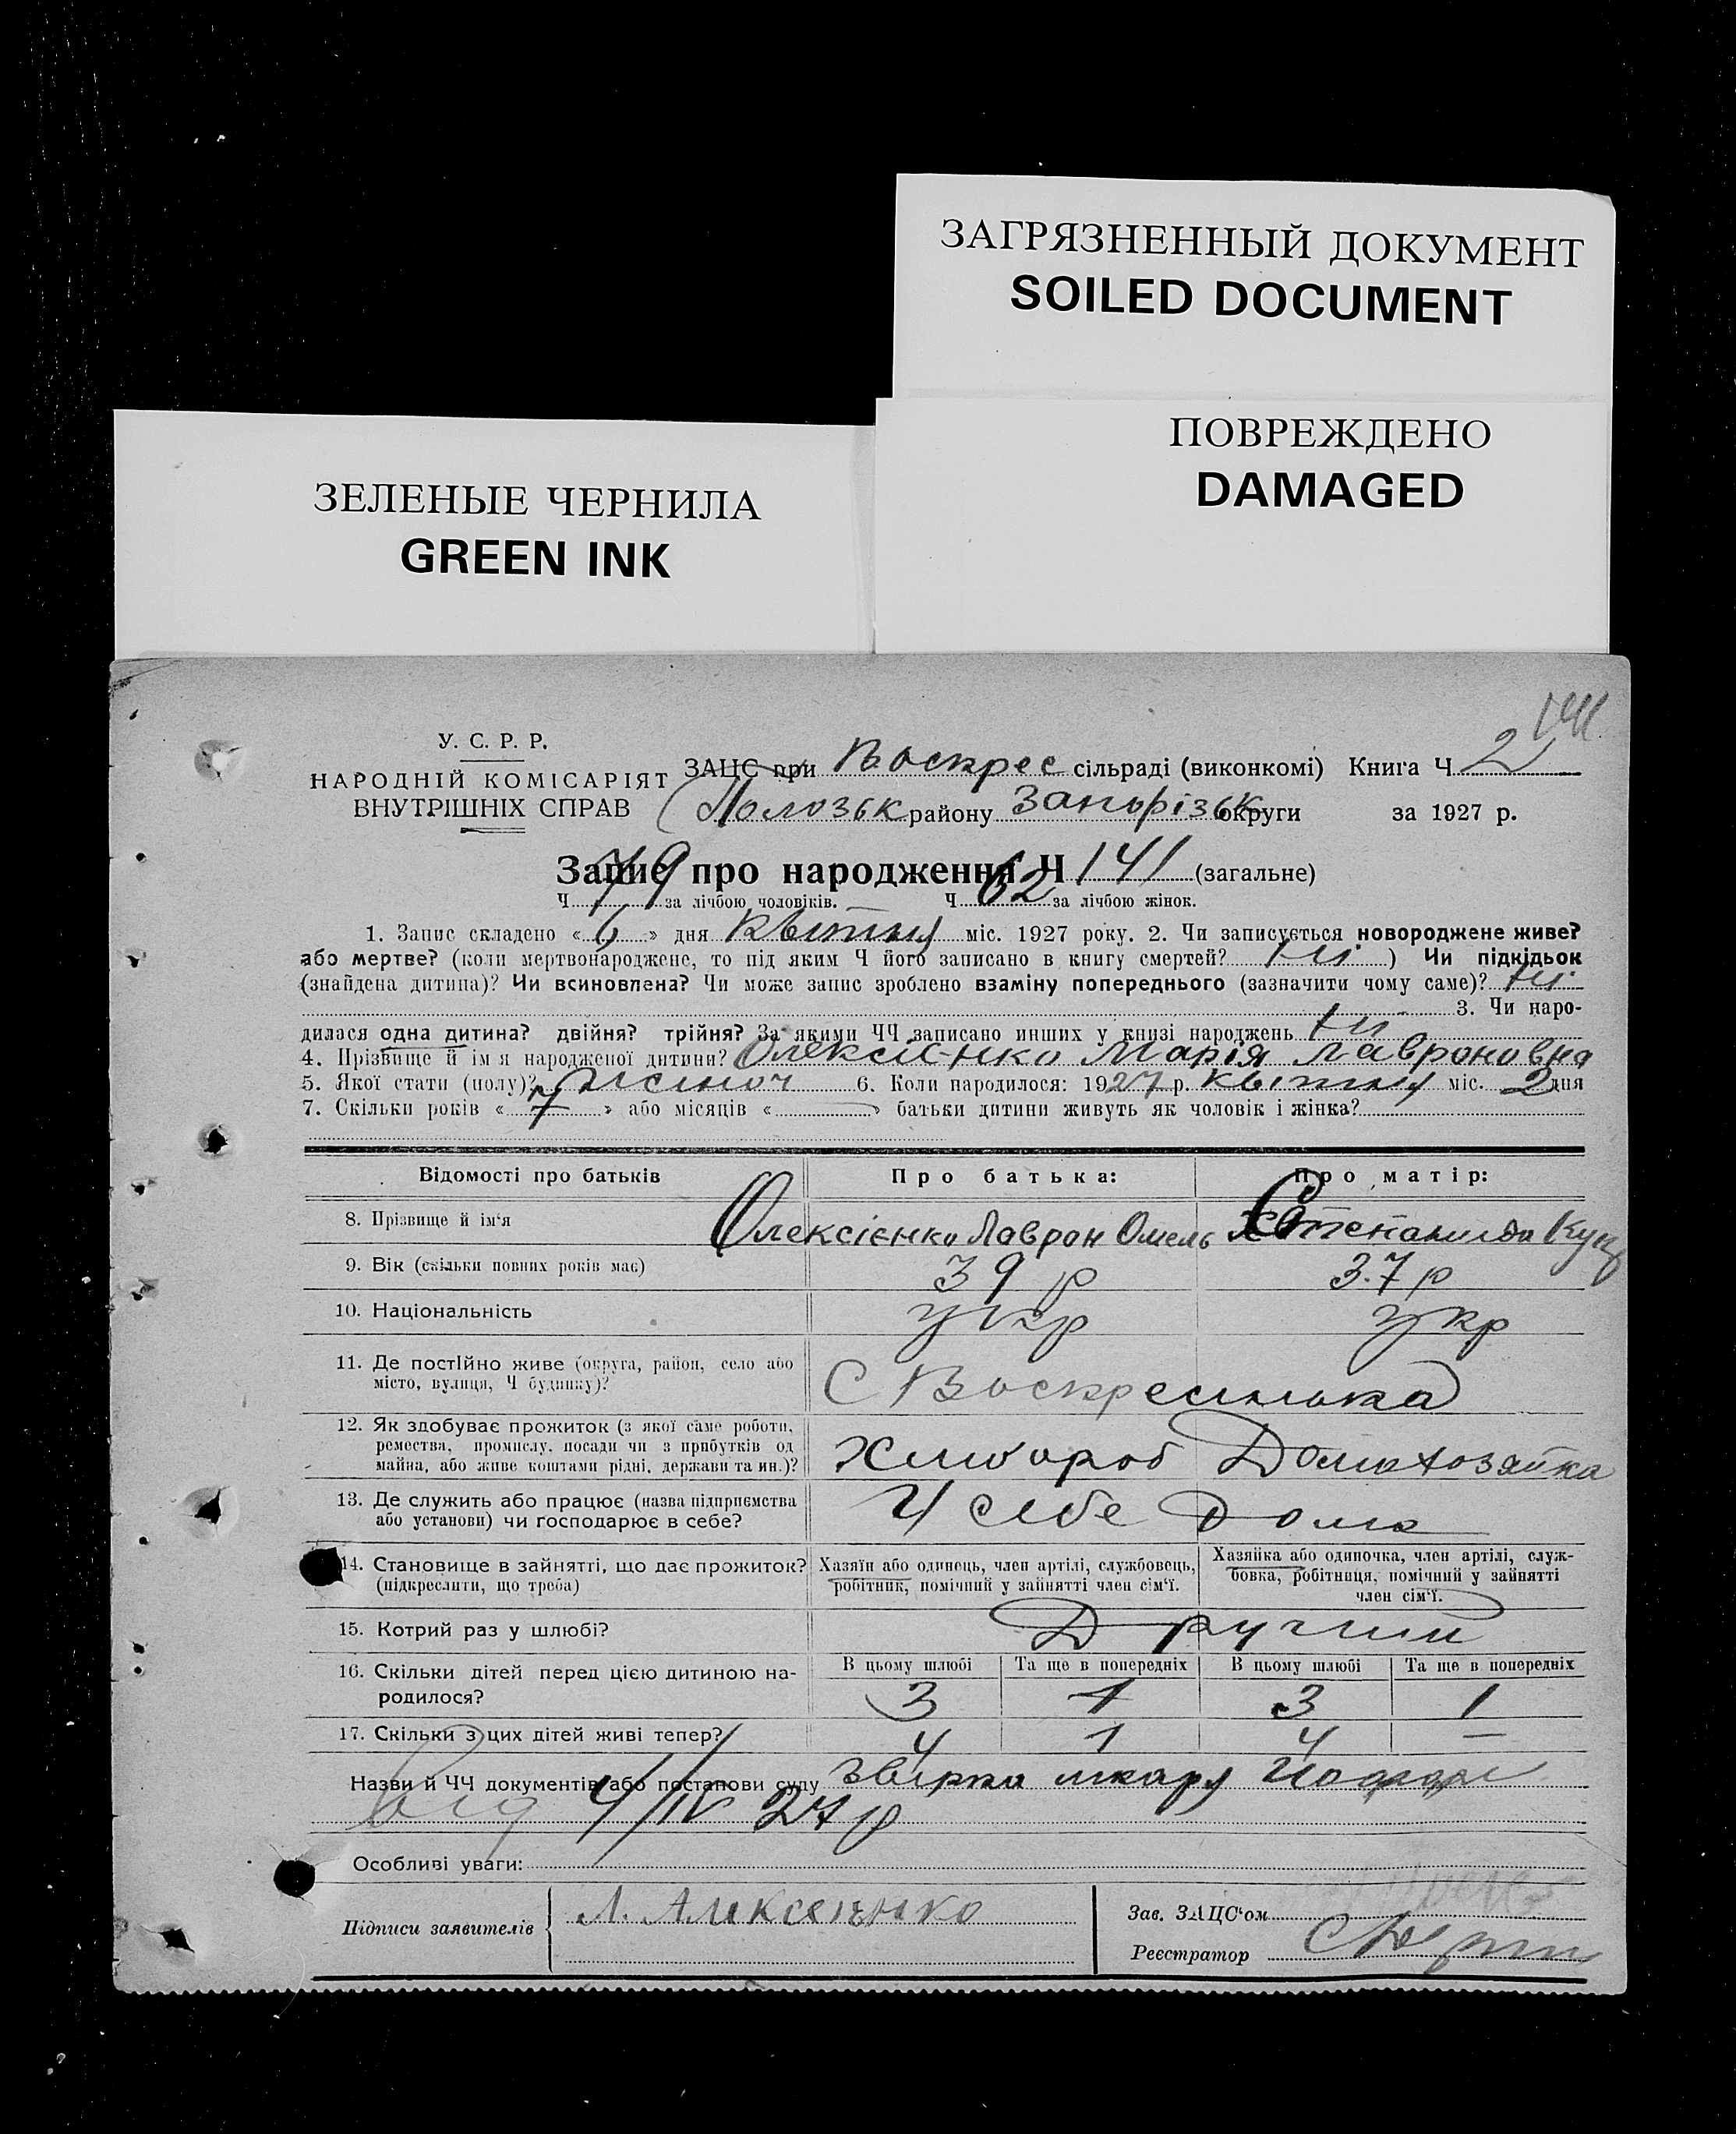 ЗАГРЯЗНЕННЫЙ ДОКУМЕНТ
SOILED DOCUMENT
ПОВРЕЖДЕНО
DAMAGED
ЗЕЛЕНЫЕ ЧЕРНИЛА
GREEN INK
141
У. С. Р. Р.
НАРОДНІЙ КОМІСАРІЯТ
ВНУТРІШНІХ СПРАВ
ЗАЦС при Воскрес сільраді (виконкомі) Книга Ч 2
Полозьк району Запорізьк округи за 1927 р.
Запис про народження Ч 141 (загальне)
Ч 79 за лічбою чоловіків. Ч 62 за лічбою жінок.
1. Запис складено « 6 » дня Квітня міс. 1927 року. 2. Чи записується новороджене живе?
або мертве? (коли мертвонароджене, то під яким Ч його записано в книгу смертей? ні ) Чи підкідьок
(знайдена дитина)? Чи всиновлена? Чи може запис зроблено взаміну попереднього (зазначити чому саме)? ні
3. Чи наро-
дилася одна дитина? двійня? трійня? За якими ЧЧ записано инших у книзі народжень ні
4. Прізвище й ім я народженої дитини? Олексієнко Марія Лавроновна
5. Якої стати (полу)? жіноч 6. Коли народилося: 1927 р. квітня міс. 2 дня
7. Скільки років « 7 » або місяців « — » батьки дитини живуть як чоловік і жінка?
Відомості про батьків Про батька: Про матір:
8. Прізвище й ім'я Олексієнко Лаврон Омель Степанида Кузь
9. Вік (скільки повних років має) 39 р 37 р
10. Національність укр укр
11. Де постійно живе (округа, район, село або
місто, вулиця, Ч будинку)? С Воскресенька
12. Як здобуває прожиток (з якої саме роботи,
ремества, промислу, посади чи з прибутків од
майна, або живе коштами рідні, держави та ин.)? Хлібороб Домохозяйка
13. Де служить або працює (назва підприємства
або установи) чи господарює в себе? У себе Дома
14. Становище в зайнятті, що дає прожиток?
(підкреслити, що треба)
Хазяїн або одинець, член артілі, службовець,
робітник, помічний у зайнятті член сім'ї.
Хазяйка або одиночка, член артілі, служ-
бовка, робітниця, помічний у зайнятті
член сім'ї.
15. Котрий раз у шлюбі? Другий
В цьому шлюбі Та ще в попередніх В цьому шлюбі Та ще в попередніх
16. Скільки дітей перед цією дитиною на-
родилося? 3 1 3 1
17. Скільки з цих дітей живі тепер? 4 1 4 —
Назви й ЧЧ документів або постанови суду
від 4/IV 27 р
Особливі уваги:
Підписи заявителів Л. Алексеенко
Зав. ЗАЦС'ом
Реєстратор